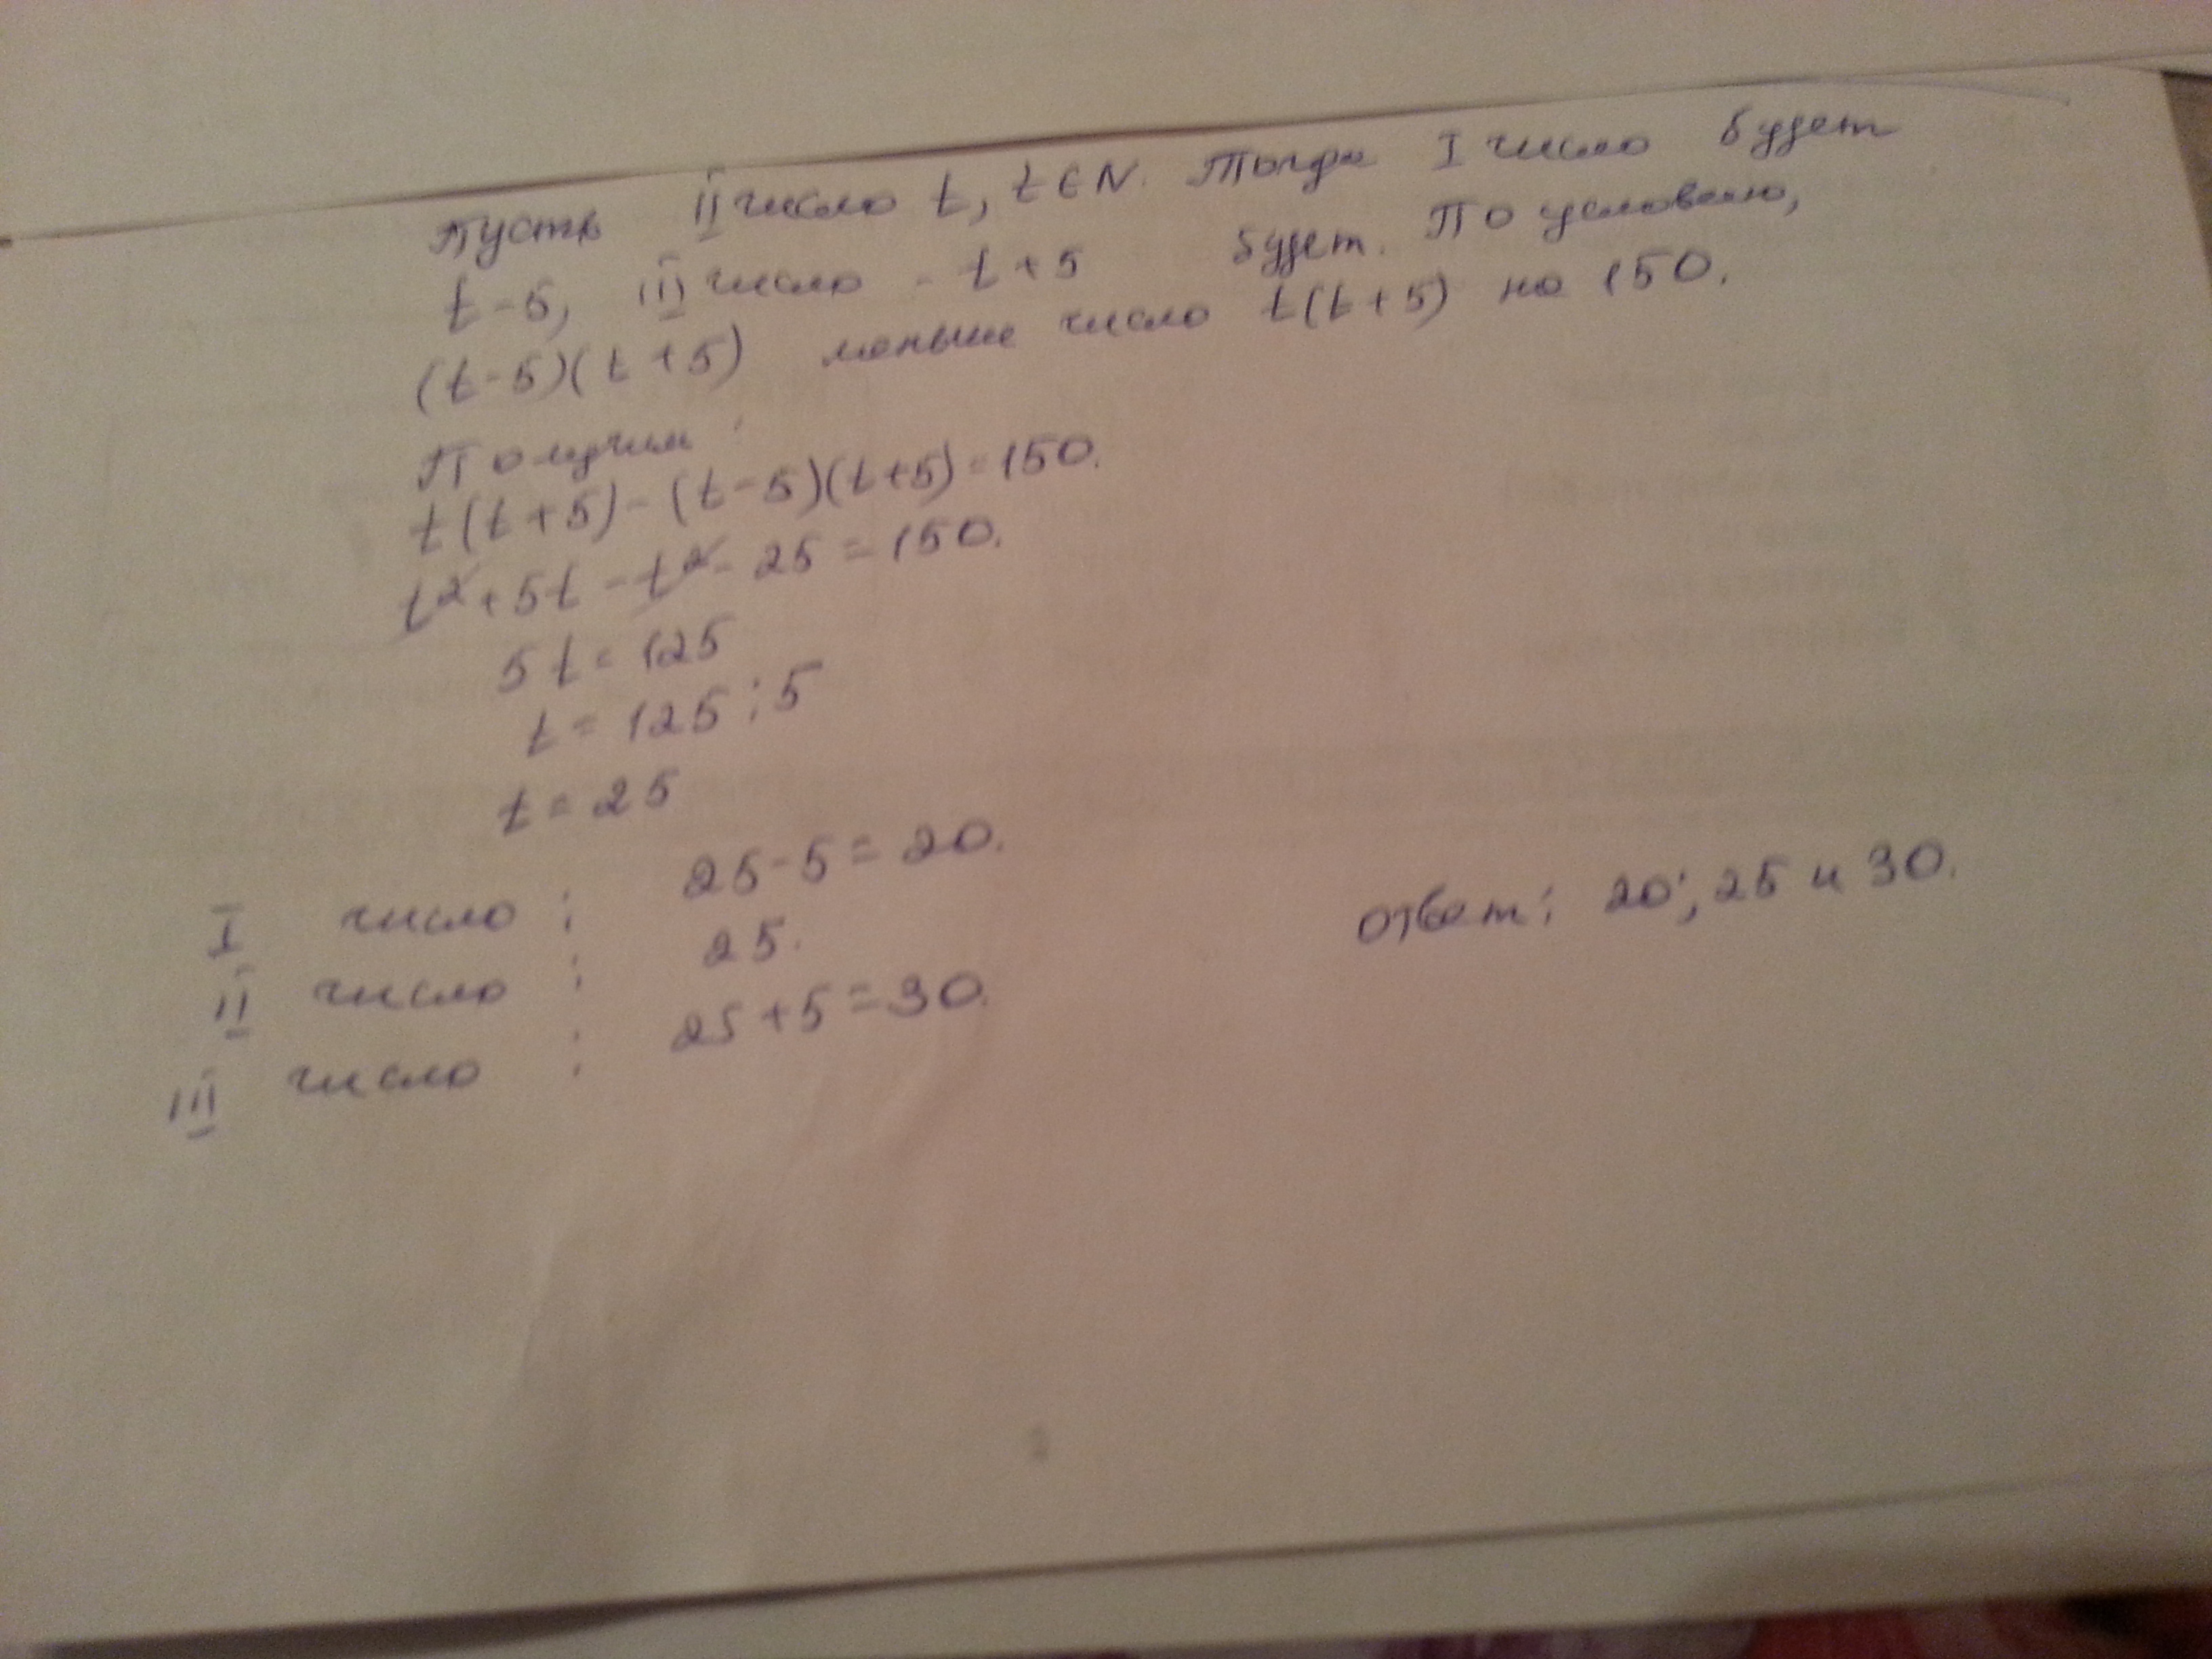 Пусть II число t, t ∈ N. Тогда I число будет
t-5, III число - t+5 будет. По условию,
(t-5)(t+5) меньше число t(t+5) на 150.
Получим:
t(t+5)-(t-5)(t+5)=150.
t²+5t-t²-25=150.
5t=125
t=125:5
t=25
I число: 25-5=20.
II число: 25.
III число: 25+5=30.
Ответ: 20; 25 и 30.